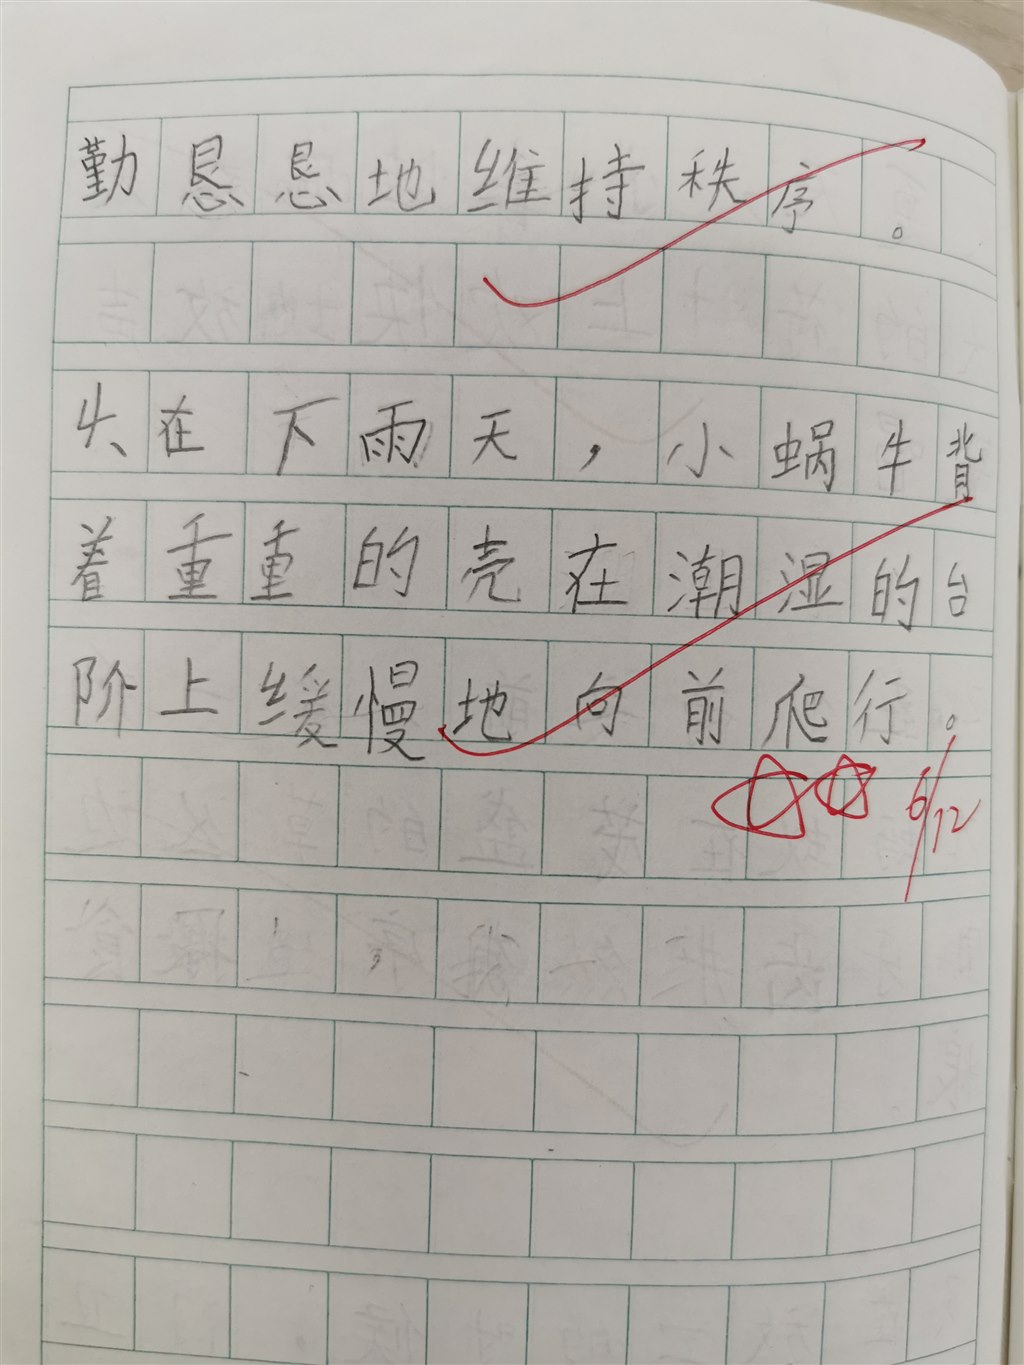 勤恳恳地维持秩序。
4、在下雨天，小蜗牛背
着重重的壳在潮湿的台
阶上缓慢地向前爬行。
6/12